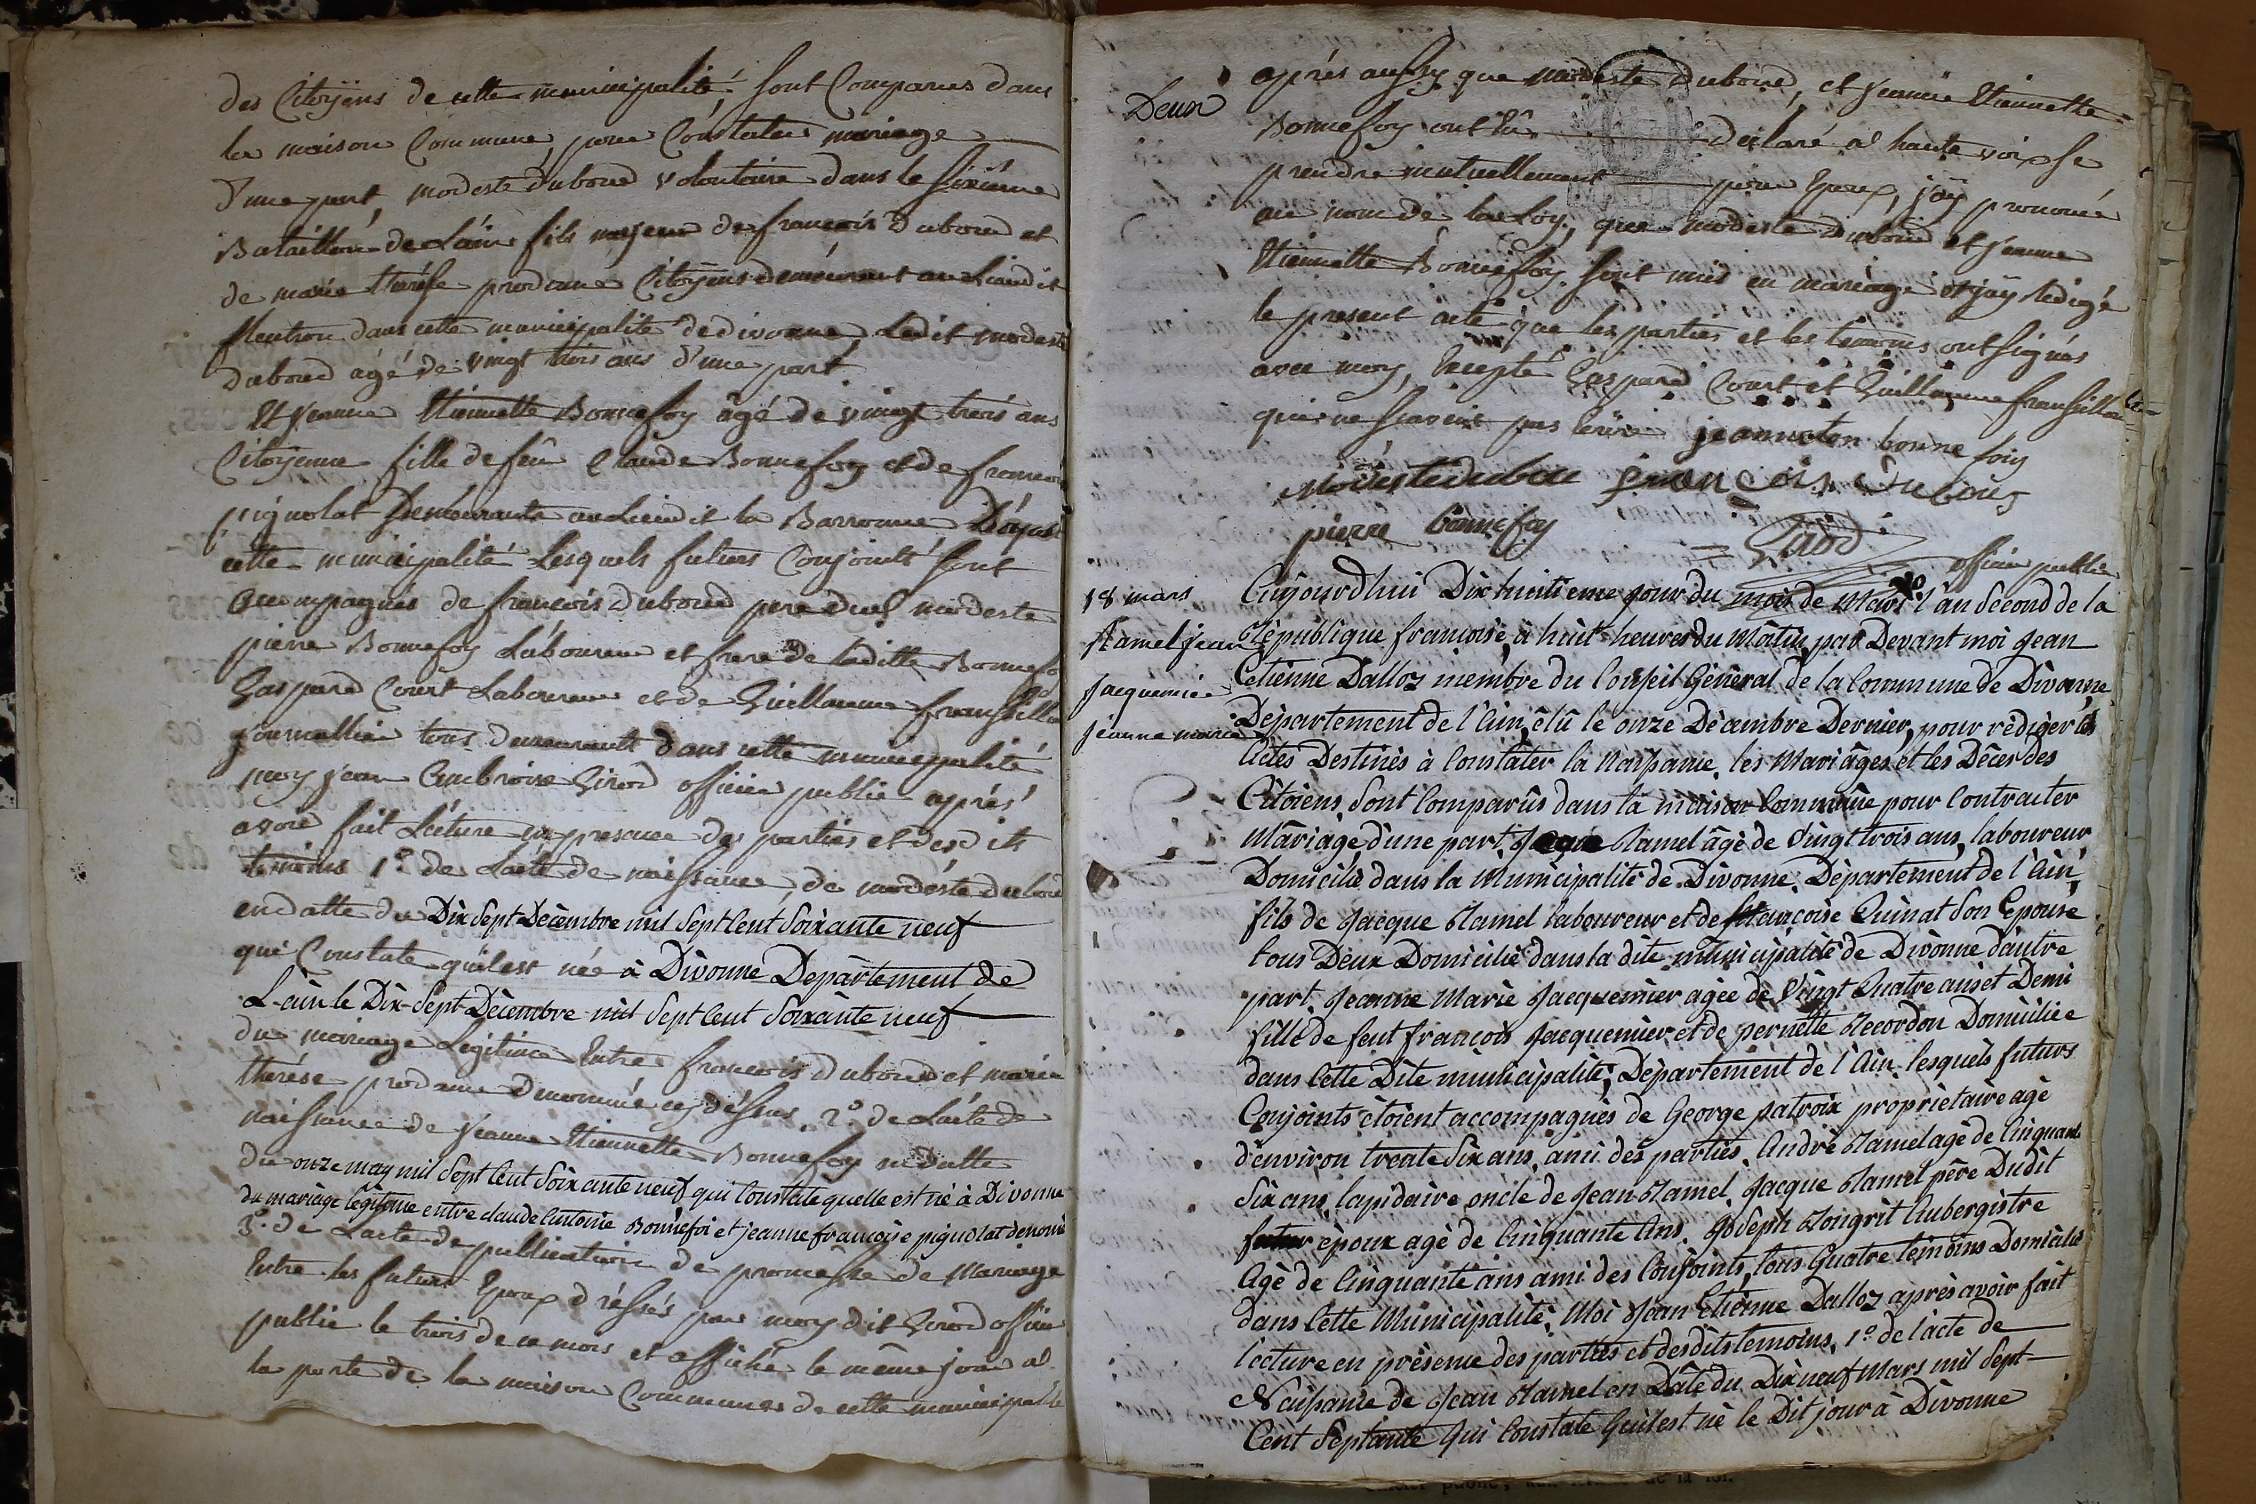 des Citoyens de cette municipalité, sont Comparus dans
la maison Commune, pour Constater mariage
d'une part modeste duboud volontaire dans le sixième
Bataillon de L'ain fils majeur de francois Duboud et
de marie thérèse prodame Citoyens demeurant au Lieudit
dans cette municipalité de divonne, Ledit modeste
duboud âgé de vingt trois ans d'une part
Et jeanne Etiennette Bonnefoy âgé de vingt trois ans
Citoyenne fille de feu Claude Bonnefoy et de francoise
pignolat Demeurante au Lieudit la Barronne
cette municipalité Lesquels futurs Conjoints sont
accompagnés de francois Duboud pere dud. modeste
pierre Bonnefoy Laboureur et frere de laditte Bonnefo
Gaspard Court Laboureur et de Guillaume fransill
journallier tous demeurant dans cette municipalité
moy jean Ambroise Girod officier public après
avoir fait Lecture en presence des parties et desdits
temoins 1º de Lacte de naissance, de modeste duboud
en datte du Dix Sept Dècembre mil Sept Cent Soixante neuf
qui Constate qu'il est née à Divonne Departement de
L'ain le Dix-Sept Dècembre mil Sept Cent Soixante neuf
du mariage Legitime Entre francois Duboud et marie
thérèse prodame denommé cy dessus. 2º de Lacte de
naissance de jeanne Etiennette Bonnefoy en datte
du onze may mil Sept Cent Soixante neuf qui Constate quelle est né à Divonne
du mariage légitime entre claude Antoine Bonnefoi et jeanne francoise pignolat denomé
3º de Lacte de publication de promesse de Mariage
Entre les futurs Epoux dréssés par moy dit Girod officier
public le trois de ce mois et affiché le même jour a
la porte de la maison Commune de cette municipalité
Deux
après aussy que modeste duboud, et jeanne Etiennette
Bonnefoy ont déclaré a haute voix se
prendre mutuellement pour Epoux, j'ay pronomcé
au nom de la Loy, que modeste duboud et jeanne
Etiennette Bonnefoy sont unis en mariage et j'ay redigé
le present acte que les parties et les temoins ont signés
avec moy, Excepté Gaspard Court et Guillaume fransillon
qui ne scavent pas Ecrire jeanneton bonne foiy
modeste dubou
pierre bonnefoy
Girod
officier public
18 mars
hamel jean
Jacquemier
jeanne marie
Aujourd'hui Dix huitieme jour du mois de Mars l'an Second de la
République francoise, à huit heures du Matin, par Devant moi Jean
Etienne Dalloz membre du Conseil Général de la Commune de Divonne
Département de l'Ain, élû le onze Décambre Dernier, pour rédiger les
Actes Destinés à Constater la Naissance, les Mariâges, et les Dêces des
Citoiens, Sont Comparûs dans la maison Commune pour Contracter
Mâriage d'une part, hamel âgè de Vingt trois ans, laboureur,
Domicilié dans la Municipalité de Divonne, Dèpartement de l'Ain,
fils de Jacque hamel laboureur et de francoise Quinat Son Epouse
tous Deux Domiciliès dans la dite Municipalité de Divonne d'autre
part, Jeanne Marie Jacquemier agèe de Vingt Quatre ans et Demi
fille de feut francois Jacquemier et de pernette Recordon Domiciliée
dans Cette Dite municipalité, Dèpartement de l'Ain, lesquels futurs
Conjoints ètoient accompagnès de George patroix propriètaire agè
d'environ trente Six ans, ami dès parties, Andrè hamel agè de Cinquante
Six ans, lapidaire oncle de Jean hamel, Jacque hamel père Dudit
futur èpoux agè de Cinquante Ans. Joseph Aubergistre
Agè de Cinquante ans ami des Conjoints, tous Quatre tèmoins Domiciliès
dans Cette Municipalité, Moi Jean Etienne Dalloz après avoir fait
lecture en prèsence des parties et desdits temoins, 1º de l'acte de
Naissance de Jean hamel en Date du Dix neuf Mars mil Sept
Cent Septante Qui Constate Qu'il est né le Dit jour à Divonne